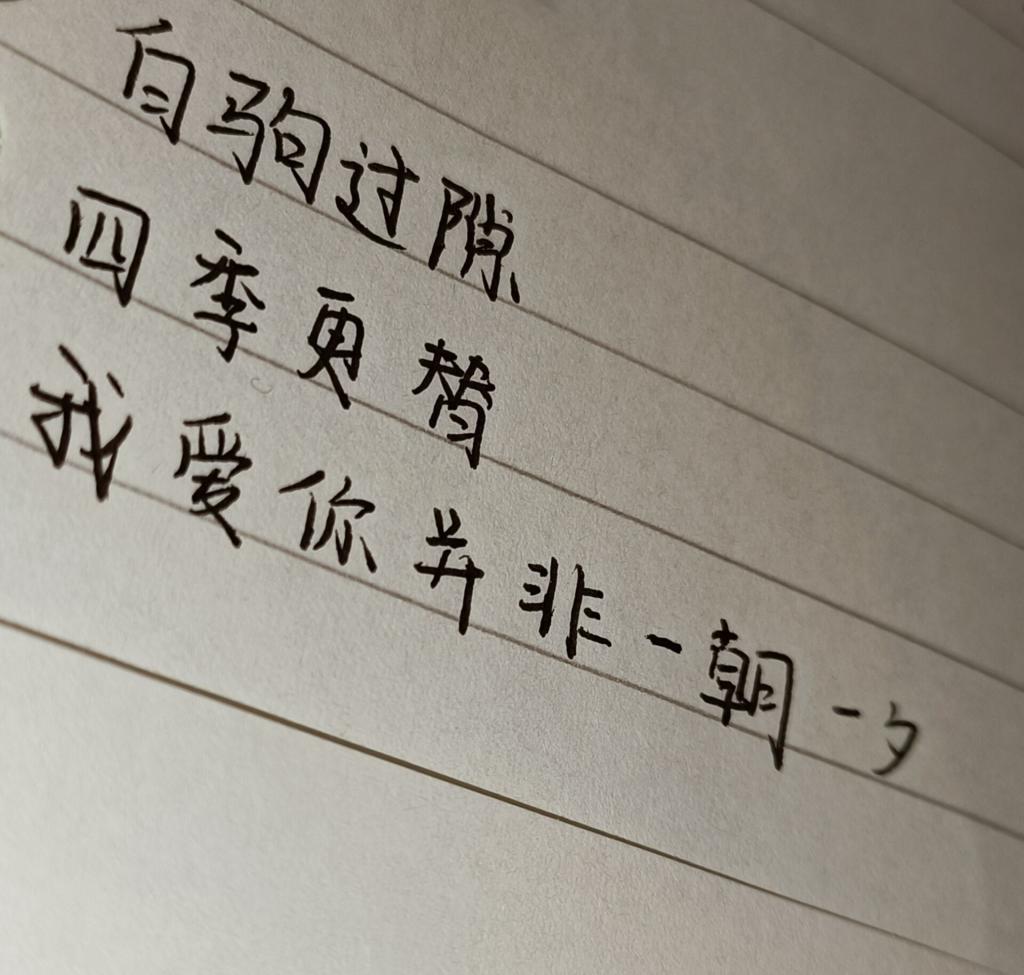 白驹过隙
四季更替
我爱你并非一朝一夕